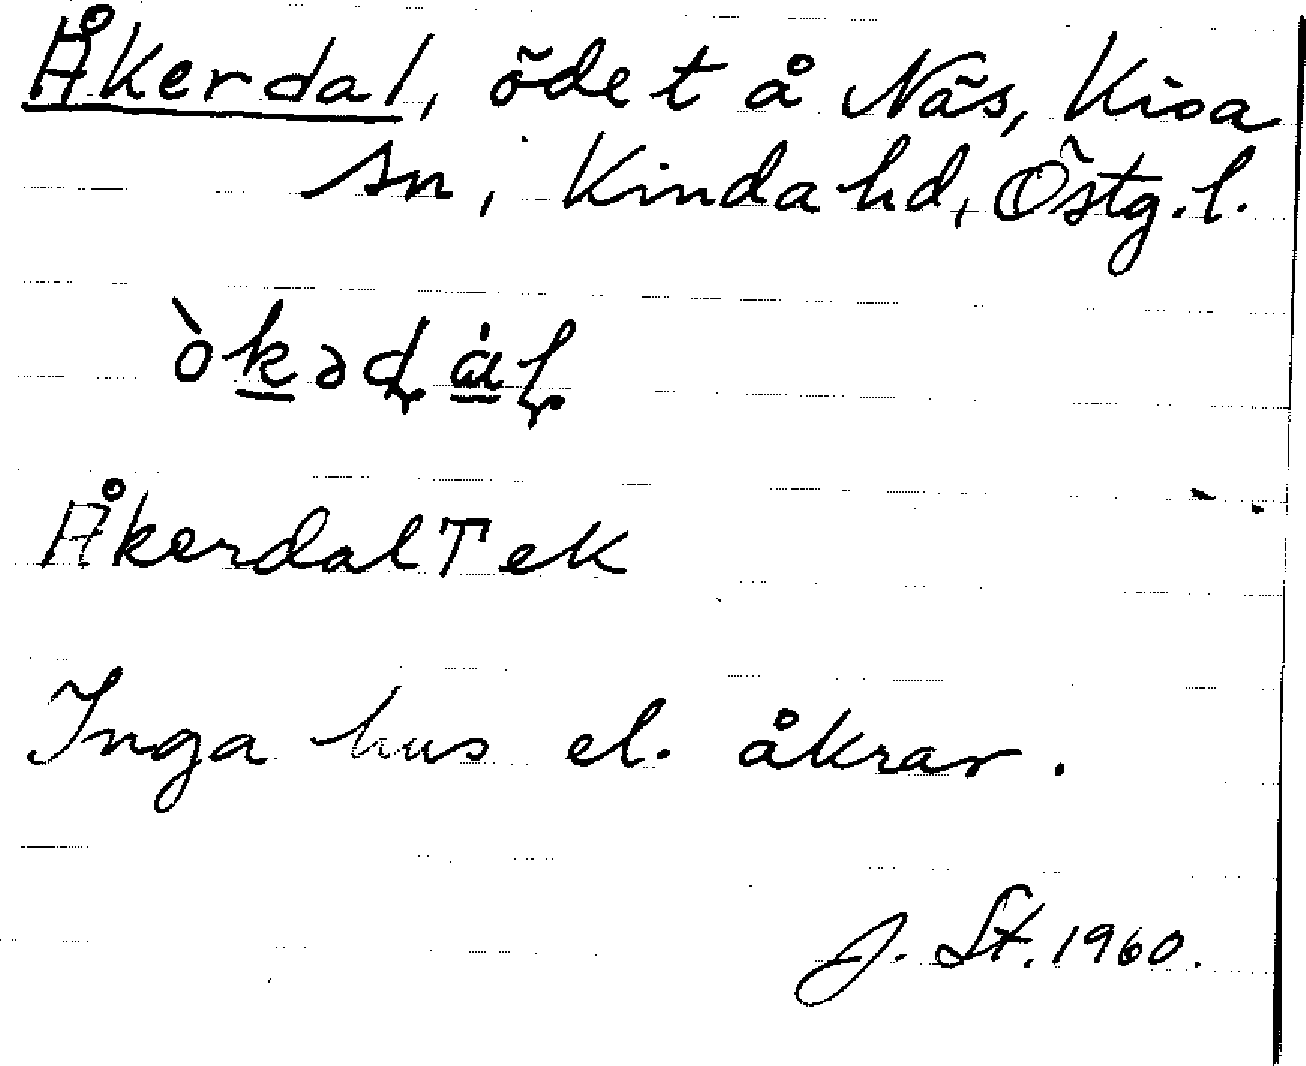 Åkerdal, öde t å Näs, Kisa
sn, Kinda hd, Östg. l.
òkədàl
Åkerdal T ek
Inga hus el. åkrar.
J. St. 1960.